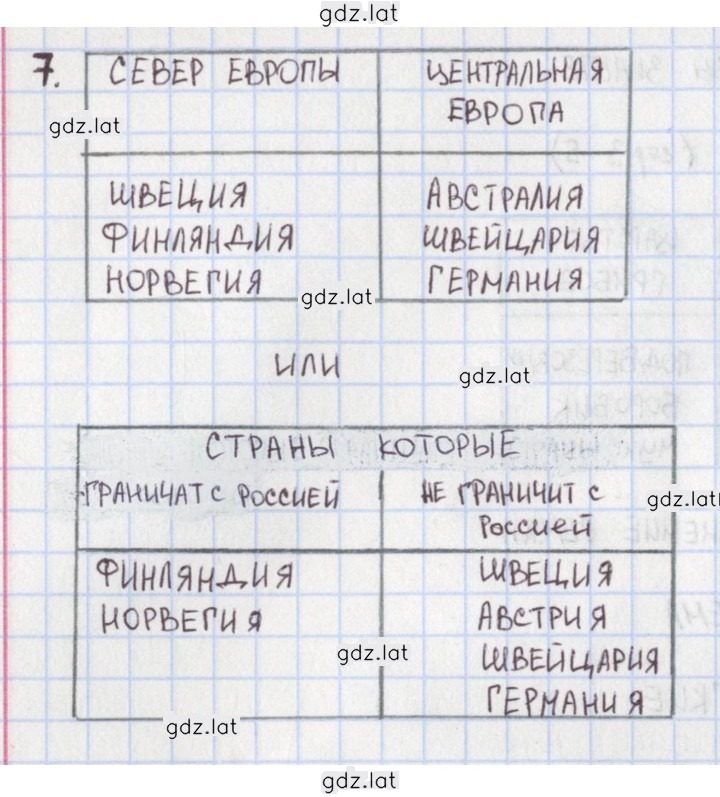 gdz.lat
7. СЕВЕР ЕВРОПЫ ЦЕНТРАЛЬНАЯ
ЕВРОПА
gdz.lat
ШВЕЦИЯ АВСТРАЛИЯ
ФИНЛЯНДИЯ ШВЕЙЦАРИЯ
НОРВЕГИЯ ГЕРМАНИЯ
gdz.lat
ИЛИ
gdz.lat
СТРАНЫ КОТОРЫЕ
ГРАНИЧАТ С РОССИЕЙ НЕ ГРАНИЧИТ С
РОССИЕЙ
gdz.lat
ФИНЛЯНДИЯ ШВЕЦИЯ
НОРВЕГИЯ АВСТРИЯ
gdz.lat
ШВЕЙЦАРИЯ
ГЕРМАНИЯ
gdz.lat
gdz.lat